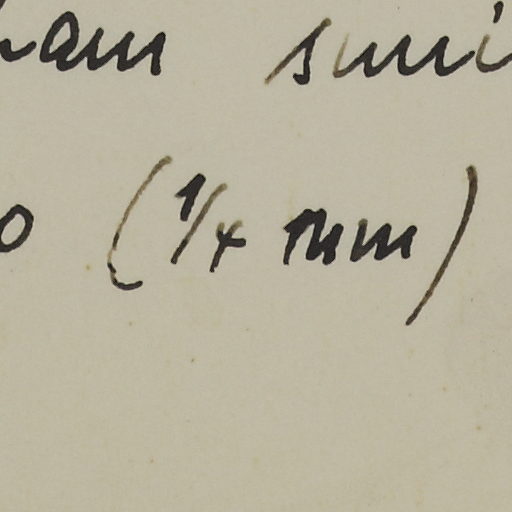 ham suni
o (1/4 mm)